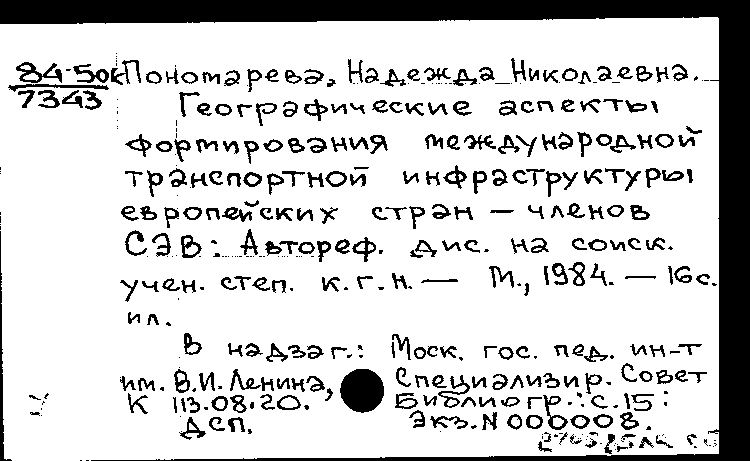 84-50к Пономарева, Надежда Николаевна.
7343
Географические аспекты
формирования международной
транспортной инфраструктуры
европейских стран — членов
СЭВ: Автореф. дис. на соиск.
учен. степ. к.г.н. — М., 1984. — 16 с.
ил.
В надзаг.: Моск. гос. пед. ин-т
им. В.И. Ленина, Специализир. Совет
К 113.08.20. Библиогр.: с. 15:
ДСП. Экз. N 000008.